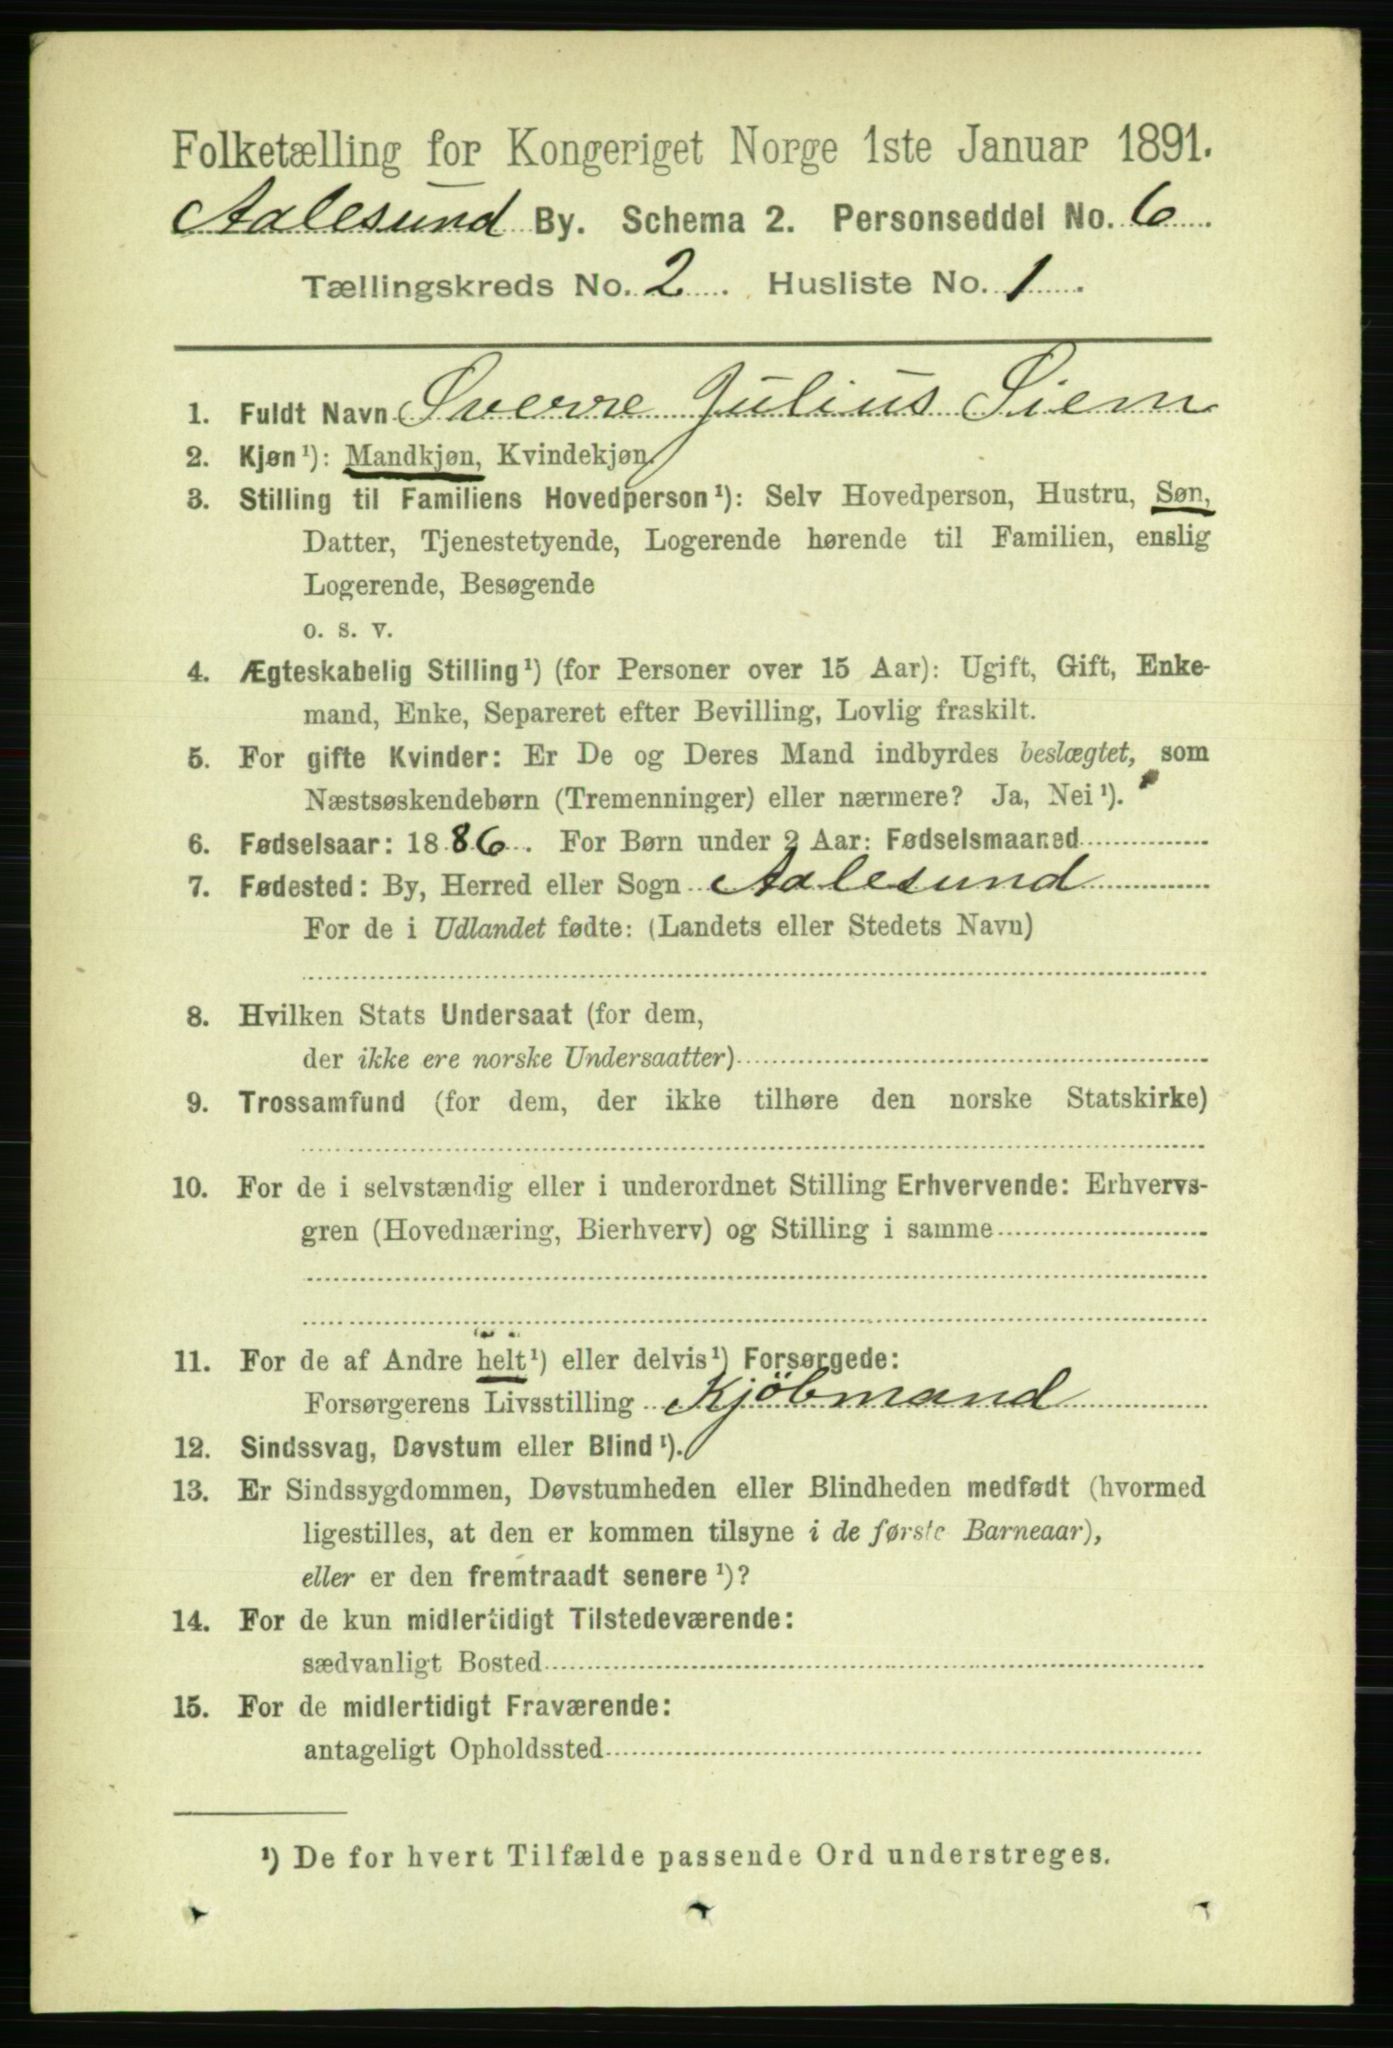 Folketælling for Kongeriget Norge 1ste Januar 1891.
Aalesund By. Schema 2. Personseddel No. 6
Tællingskreds No. 2. Husliste No. 1.
1. Fuldt Navn Sverre Julius Siem
2. Kjøn¹): Mandkjøn, Kvindekjøn.
3. Stilling til Familiens Hovedperson¹): Selv Hovedperson, Hustru, Søn,
Datter, Tjenestetyende, Logerende hørende til Familien, enslig
Logerende, Besøgende
o. s. v.
4. Ægteskabelig Stilling¹) (for Personer over 15 Aar): Ugift, Gift, Enke-
mand, Enke, Separeret efter Bevilling, Lovlig fraskilt.
5. For gifte Kvinder: Er De og Deres Mand indbyrdes beslægtet, som
Næstsøskendebørn (Tremenninger) eller nærmere? Ja, Nei¹).
6. Fødselsaar: 1886. For Børn under 2 Aar: Fødselsmaaned
7. Fødested: By, Herred eller Sogn Aalesund
For de i Udlandet fødte: (Landets eller Stedets Navn)
8. Hvilken Stats Undersaat (for dem,
der ikke ere norske Undersaatter)
9. Trossamfund (for dem, der ikke tilhøre den norske Statskirke)
10. For de i selvstændig eller i underordnet Stilling Erhvervende: Erhvervs-
gren (Hovednæring, Bierhverv) og Stilling i samme
11. For de af Andre helt¹) eller delvis¹) Forsørgede:
Forsørgerens Livsstilling Kjöbmand
12. Sindssvag, Døvstum eller Blind¹).
13. Er Sindssygdommen, Døvstumheden eller Blindheden medfødt (hvormed
ligestilles, at den er kommen tilsyne i de første Barneaar),
eller er den fremtraadt senere¹)?
14. For de kun midlertidigt Tilstedeværende:
sædvanligt Bosted
15. For de midlertidigt Fraværende:
antageligt Opholdssted
¹) De for hvert Tilfælde passende Ord understreges.